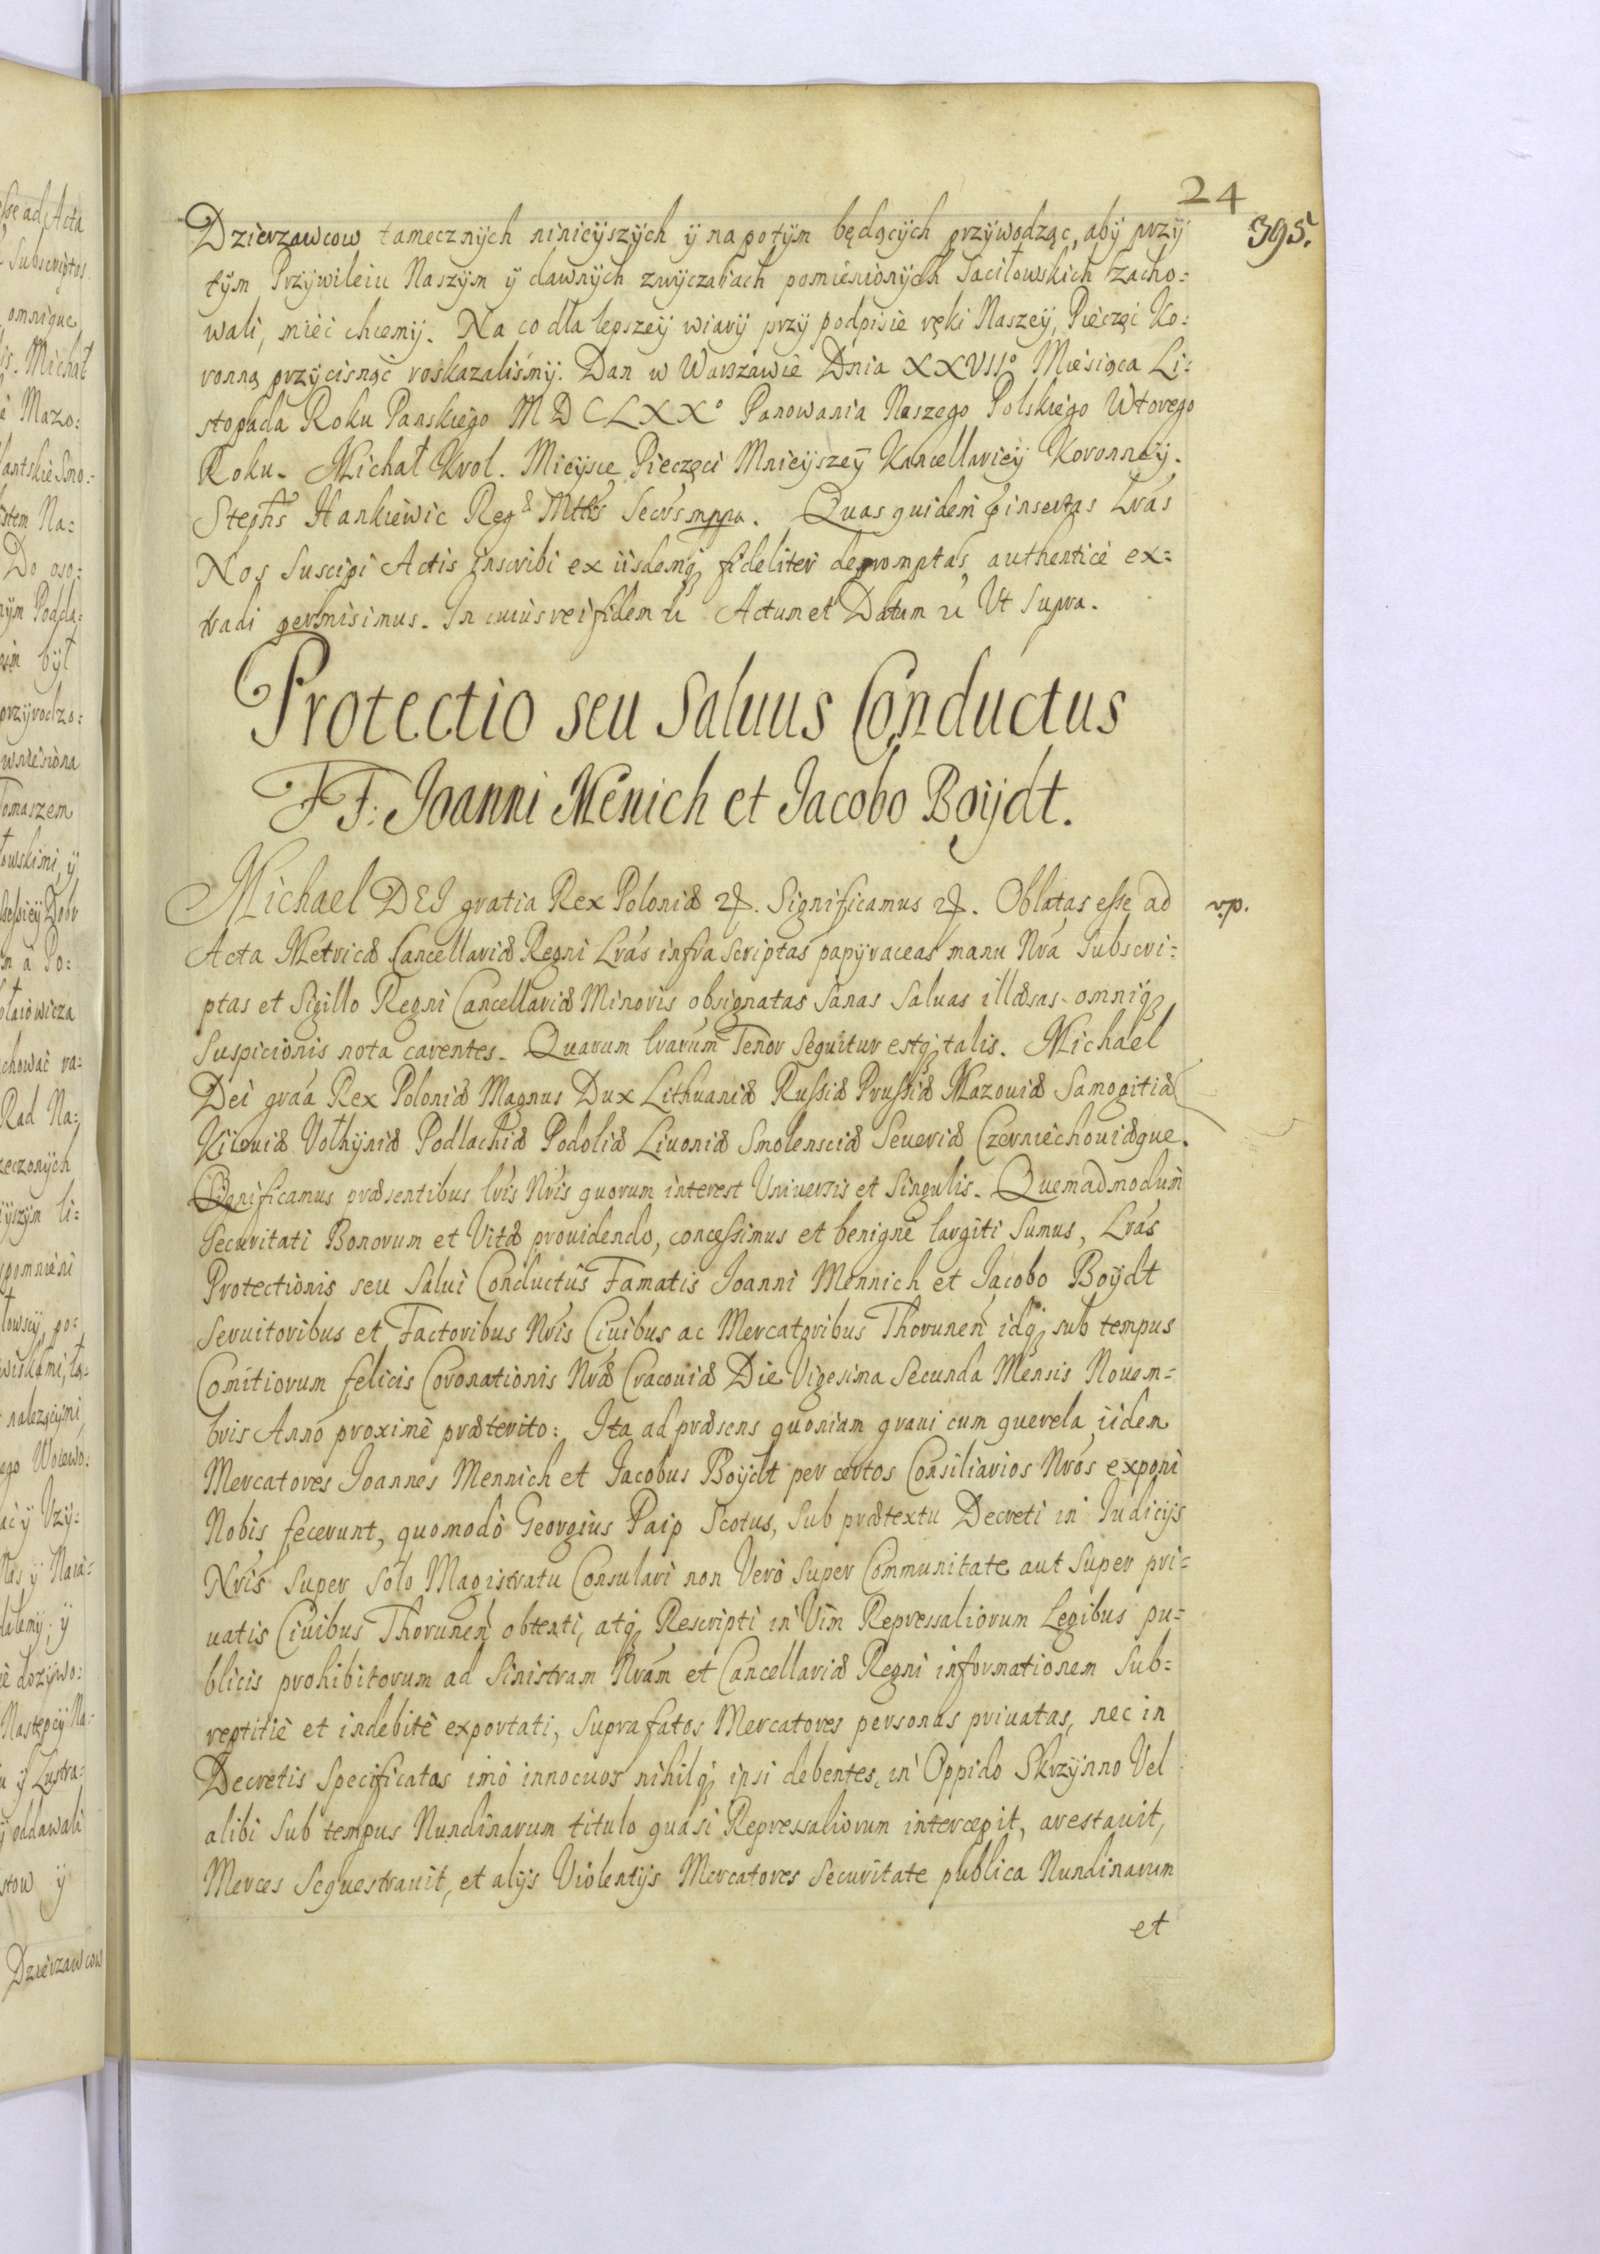 24
395.
Dzierzawcow tamecznÿch ninieÿszÿch ÿ na potÿm będącÿch przÿwodząc, abÿ przÿ
tÿm Przÿwileiu Naszÿm ÿ dawnÿch zwÿczaiach pomienionÿch Taciłowskich zacho=
wali, mieć chcemÿ. Na co dla lepszeÿ wiarÿ przÿ podpisie ręki Naszeÿ, Pieczęć Ko=
ronną przÿcisnąć roskazaliśmÿ. Dan w Warszawie Dnia XXVIIº Miesiąca Li=
stopada Roku Panskiego MDCLXXº Panowania Naszego Polskiego Wtorego
Roku. Michał Krol. Mieÿsce Pieczęci Mnieÿszeÿ Kancellarieÿ Koronneÿ.
Stephs Hankiewic Regæ Mttis Secrs mppa. Quas quidem insertas Lrás
Nos Suscipi Actis inscribi ex iisdemq fideliter depromptas authentice ex=
tradi permisimus. In cuius rei fidem Actum et Datum Ut Supra.
Protectio seu Saluus Conductus
FF: Joanni Menich et Jacobo Boÿdt.
Michael DEI gratia Rex Poloniæ etc. Significamus etc. Oblatas esse ad
r.p.
Acta Metricæ Cancellariæ Regni Lrás infra Scriptas papÿraceas manu Nrá Subscri=
ptas et Sigillo Regni Cancellariæ Minoris obsignatas Sanas Saluas illæsas omniq
Suspicionis nota carentes. Quarum lrarum Tenor Sequitur estq talis. Michael
Dei graá Rex Poloniæ Magnus Dux Lithuaniæ Russiæ Prussiæ Mazouiæ Samogitiæ
Kijouiæ Volhÿniæ Podlachiæ Podoliæ Liuoniæ Smolensciæ Seueriæ Czerniechouiæque.
Significamus præsentibus lris Nris quorum interest Uniuersis et Singulis. Quemadmodum
Securitati Bonorum et Vitæ prouidendo, concessimus et benignè largiti Sumus, Lrás
Protectionis seu Salui Conductûs Famatis Joanni Mennich et Jacobo Boÿdt
Seruitoribus et Factoribus Nris Ciuibus ac Mercatoribus Thorunen idq sub tempus
Comitiorum felicis Coronationis Nræ Cracouiæ Die Vigesima Secunda Mensis Nouem=
bris Anno proximè præterito: Ita ad præsens quoniam graui cum querela iidem
Mercatores Joannes Mennich et Jacobus Boÿdt per certos Consiliarios Nros exponi
Nobis fecerunt, quomodò Georgius Paip Scotus, Sub prætextu Decreti in Judicijs
Nris Super Solo Magistratu Consulari non Verò Super Communitate aut Super pri=
uatis Ciuibus Thorunen obtenti, atq Rescripti in Vim Repressaliorum Legibus pu=
blicis prohibitorum ad Sinistram Nrám et Cancellariæ Regni informationem Sub=
reptitiè et indebitè exportati, Supra fatos Mercatores personas priuatas, nec in
Decretis Specificatas imò innocuos nihilq ipsi debentes, in Oppido Skrzÿnno Vel
alibi Sub tempus Nundinarum titulo quasi Repressaliorum intercepit, arestauit,
Merces Sequestrauit, et alijs Violentijs Mercatores Securitate publica Nundinarum
et